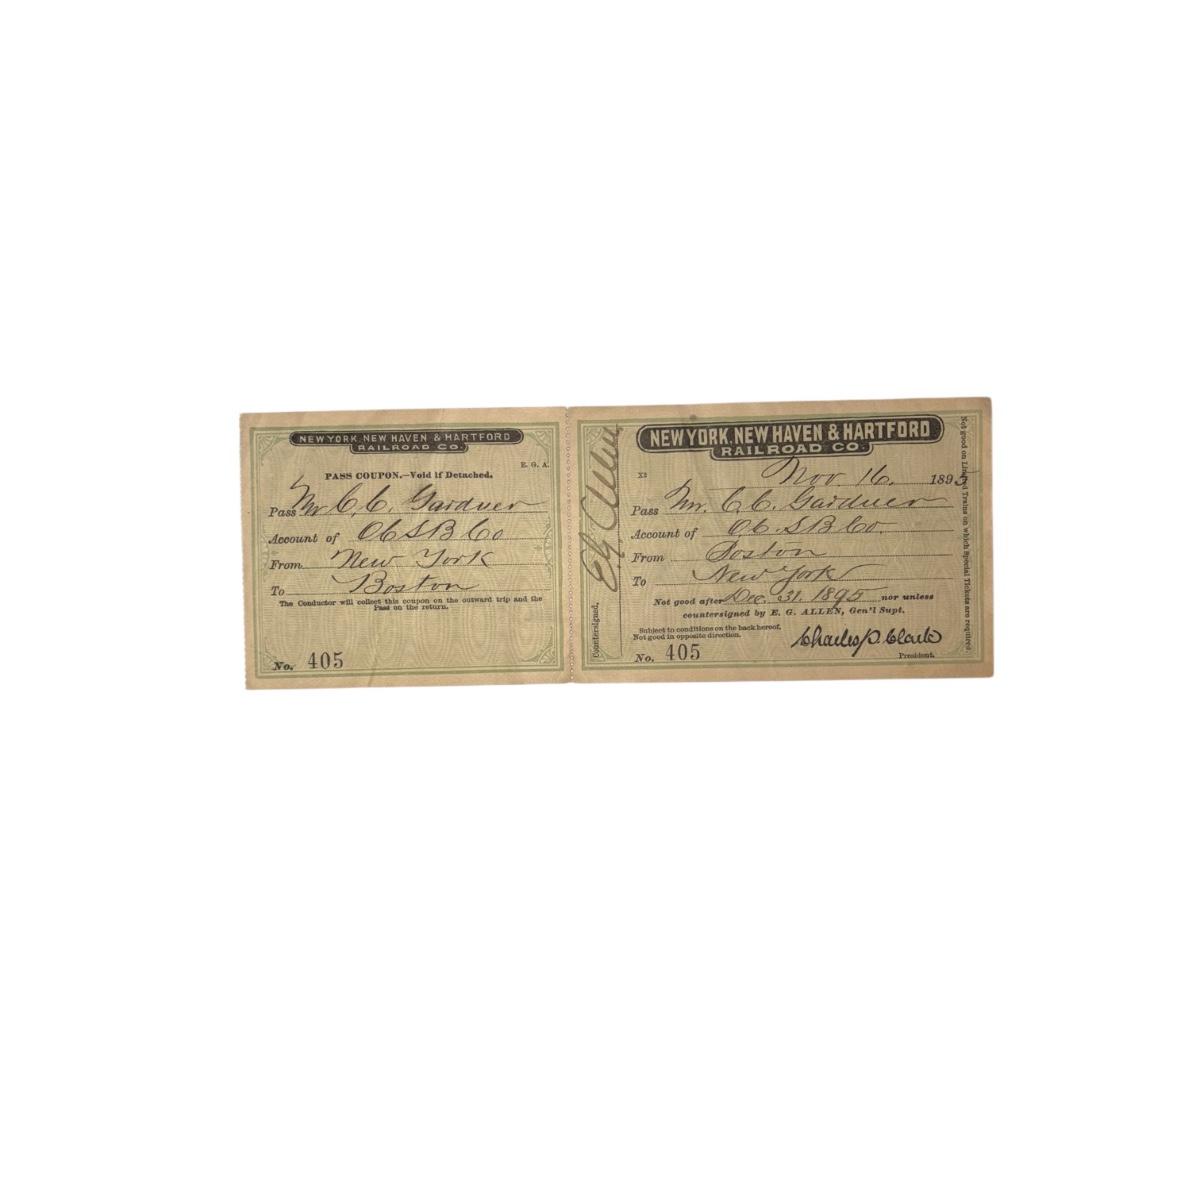 NEW YORK, NEW HAVEN & HARTFORD
RAILROAD CO.
E. G. A.
PASS COUPON.—Void if Detached.
Pass Mr C. C. Gardner
Account of O C S B Co
From New York
To Boston
The Conductor will collect this coupon on the outward trip and the
Pass on the return.
No. 405
Countersigned, E. G. Allen
NEW YORK, NEW HAVEN & HARTFORD
RAILROAD CO.
X3
Nov. 16. 1895
Pass Mr. C. C. Gardner
Account of O C. S B Co.
From Boston
To New York
Not good after Dec. 31. 1895 nor unless
countersigned by E. G. ALLEN, Gen'l Supt.
Subject to conditions on the back hereof.
Not good in opposite direction.
Charles P. Clark
President.
No. 405
Not good on Limited Trains on which Special Tickets are required.